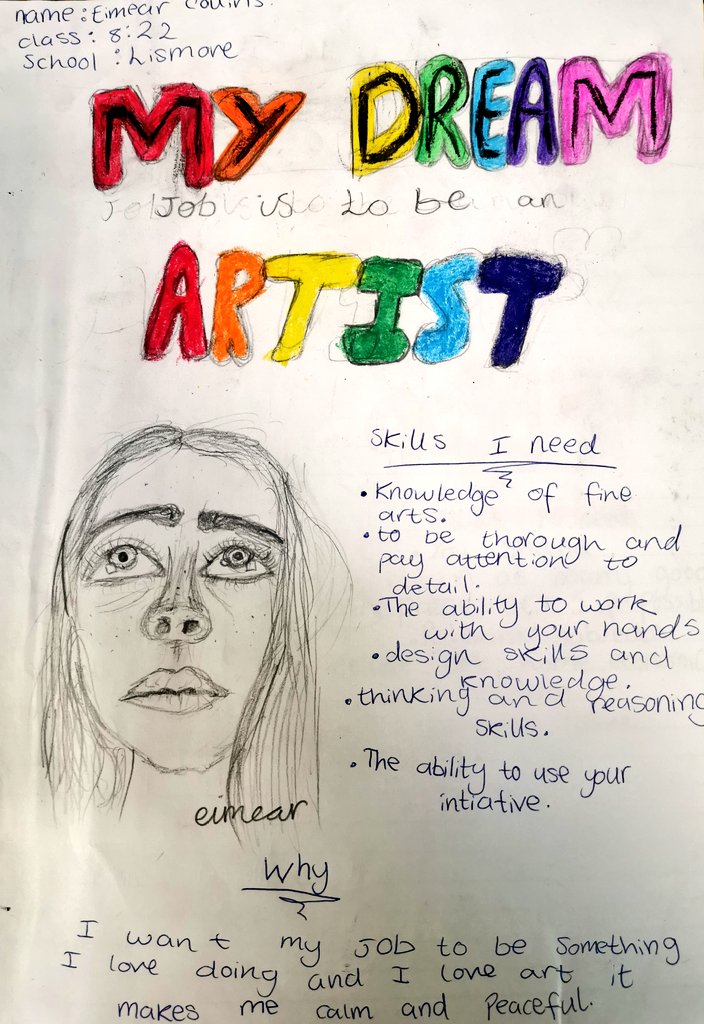 name: Eimear
class: 8:22
School: Lismore
MY DREAM
Job is to be an
ARTIST
Skills I need
• Knowledge of fine
arts.
• to be thorough and
pay attention to
detail.
• The ability to work
with your hands
• design skills and
knowledge.
• thinking and reasoning
skills.
• The ability to use your
intiative.
eimear
Why
I want my JOB to be something
I love doing and I love art it
makes me calm and Peaceful.